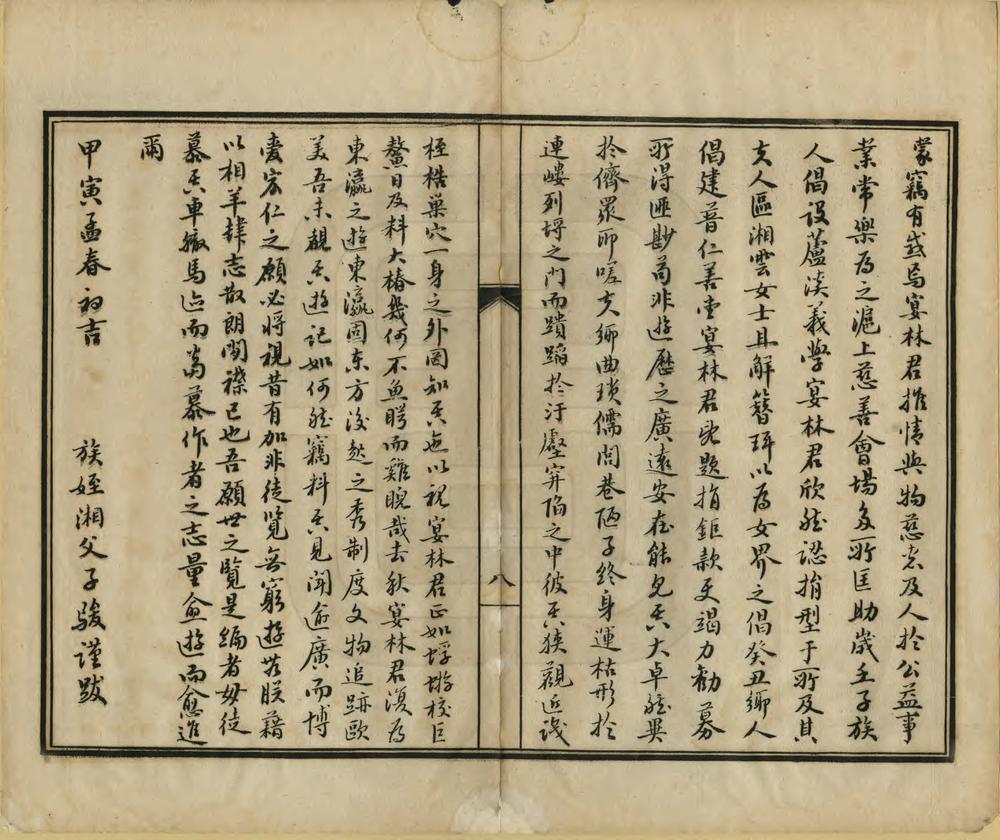 蒙竊有感焉宴林君推情與物慈崇及人於公益事
業常樂為之滬上慈善會場多所匡助歲壬子族
人倡設蘆淡義學宴林君欣然認捐型于所及其
夫人區湘雲女士且解簪珥以為女界之倡癸丑鄉人
倡建普仁善堂宴林君既題捐鉅款更竭力勸募
所得匪尠苟非遊歷之廣遠安在能見其大卓然異
於儕眾耶嗟夫鄉曲瑣儒閭巷陋子終身運枯形於
連嶁列埒之門而蹪蹈於汙壑穽陷之中彼其狹觀近識
桎梏巢穴一身之外罔知其他以視宴林君正如蜉蝣校巨
鰲日及料大椿幾何不魚睯而雞睨哉去秋宴林君復為
東瀛之遊東瀛固東方後起之秀制度文物追跡歐
美吾未觀其遊記如何然竊料其見聞逾廣而博
愛宏仁之願必將視昔有加非徒覽無窮遊無朕藉
以相羊肆志散朗閒襟已也吾願世之覽是編者毋徒
慕其車轍馬迹而當慕作者之志量愈遊而愈進
爾
甲寅孟春初吉　族姪湘父子駿謹跋
八